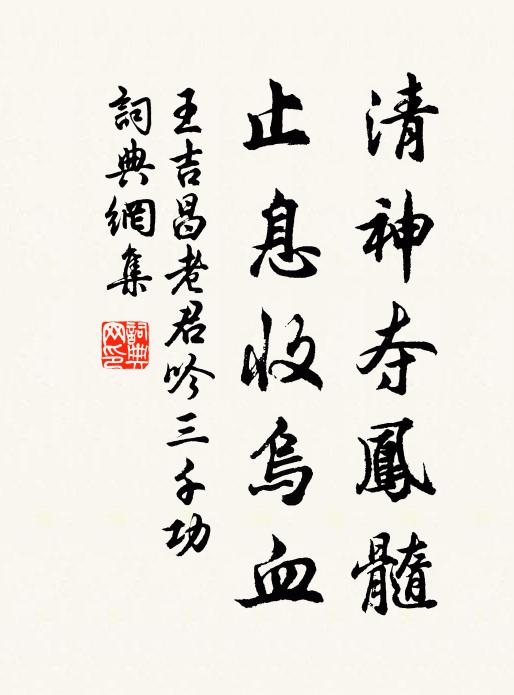 清神夺鳳髓
止息收烏血
王吉昌老君吟三千功
詞典網集
詞典網印